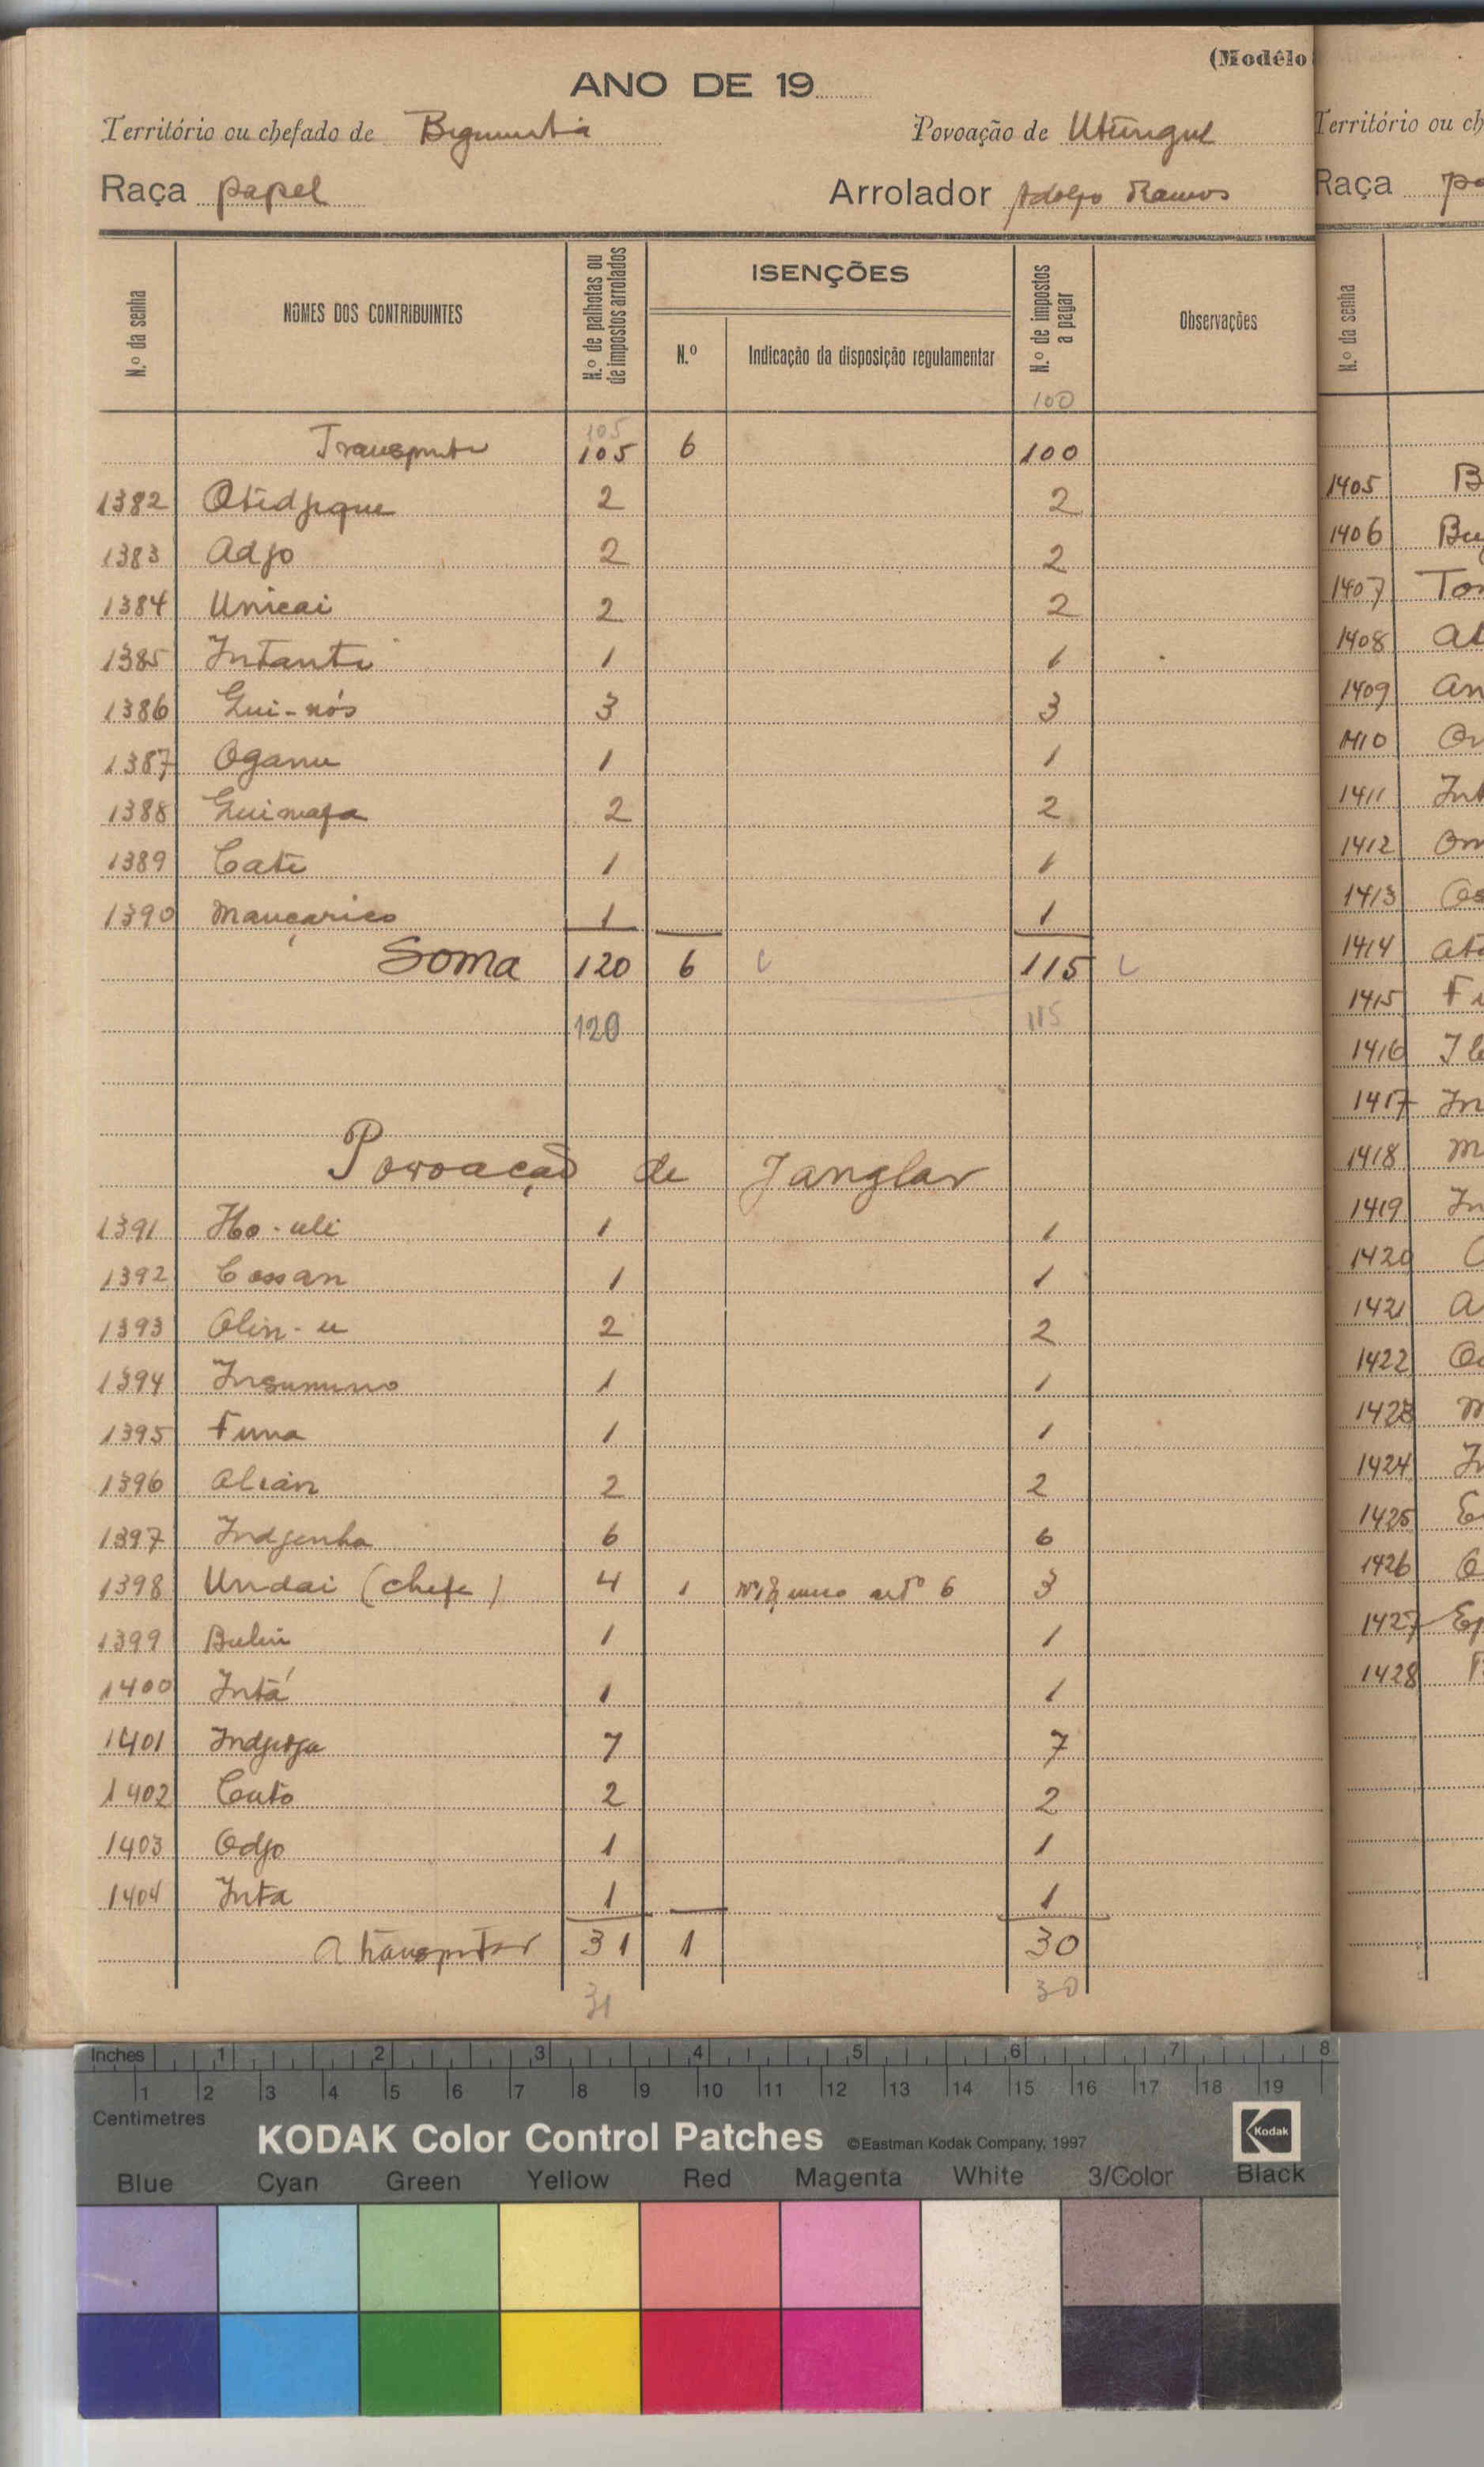 (Modêlo
ANO DE 19
Território ou chefado de Povoação de Utungul
Raça papel Arrolador Adolfo Ramos
N.º da senha
NOMES DOS CONTRIBUINTES
N.º de palhotas ou de impostos arrolados
ISENÇÕES
N.º
Indicação da disposição regulamentar
N.º de impostos a pagar
Observações
100
105
Transporte 105 6 100
1382 Otidjique 2 2
1383 Adjo 2 2
1384 Unicai 2 2
1385 Intante 1 1
1386 Gui-nós 3 3
1387 Oganu 1 1
1388 Guimafa 2 2
1389 Cate 1 1
1390 Mançarico 1 1
Soma 120 6 115
120 115
Povoação de Janglar
1391 Ho-uli 1 1
1392 Cossan 1 1
1393 Olin-u 2 2
1394 1 1
1395 Funa 1 1
1396 Alian 2 2
1397 Indjenha 6 6
1398 Undai (chefe) 4 1 artº 6 3
1399 1 1
1400 Intá 1 1
1401 7 7
1402 Cuto 2 2
1403 Odjo 1 1
1404 Inta 1 1
A transportar 31 1 30
31 30
Território ou ch
Raça
N.º da senha
1405
1406
1407
1408
1409
1410
1411
1412
1413
1414
1415
1416
1417
1418
1419
1420
1421
1422
1423
1424
1425
1426
1427
1428
Inches 1 2 3 4 5 6 7 8
1 2 3 4 5 6 7 8 9 10 11 12 13 14 15 16 17 18 19
Centimetres
KODAK Color Control Patches ©Eastman Kodak Company, 1997 Kodak
Blue Cyan Green Yellow Red Magenta White 3/Color Black